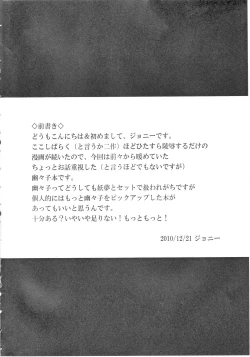 ◇前書き◇
どうもこんにちは&初めまして、ジョニーです。
ここしばらく(と言うか二作)ほどひたすら陵辱するだけの
漫画が続いたので、今回は前々から暖めていた
ちょっとお話重視した(と言うほどでもないですが)
幽々子本です。
幽々子ってどうしても妖夢とセットで扱われがちですが
個人的にはもっと幽々子をピックアップした本が
あってもいいと思うんです。
十分ある?いやいや足りない!もっともっと!
2010/12/21 ジョニー